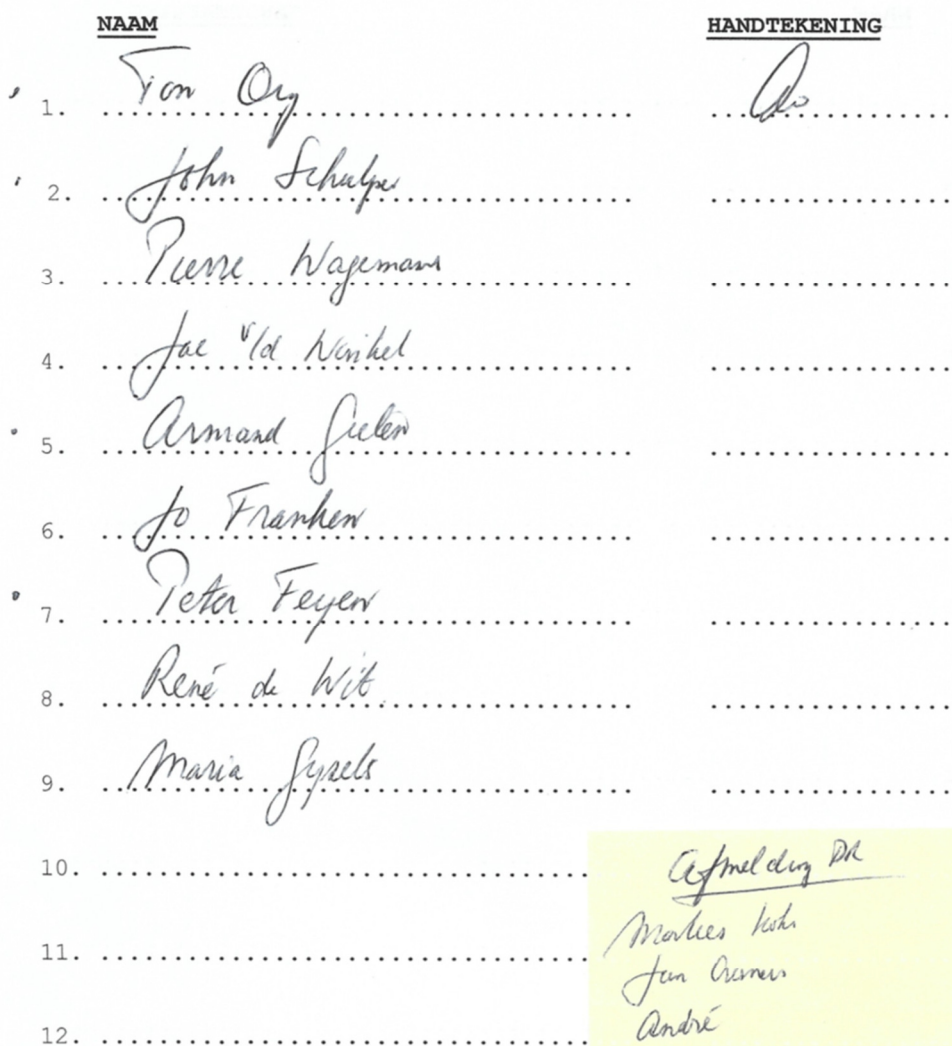 NAAM HANDTEKENING
1. Ton Ory
2. John Schulper
3. Pierre Wagemans
4. Jac v/d Winkel
5. Armand Gielen
6. Jo Franken
7. Peter Feyen
8. René de Wit
9. Maria Gysels
10.
Afmelding DR
11.
Marlies
Jan Cramers
12.
André